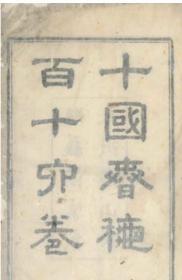 十國春秋
百十四卷